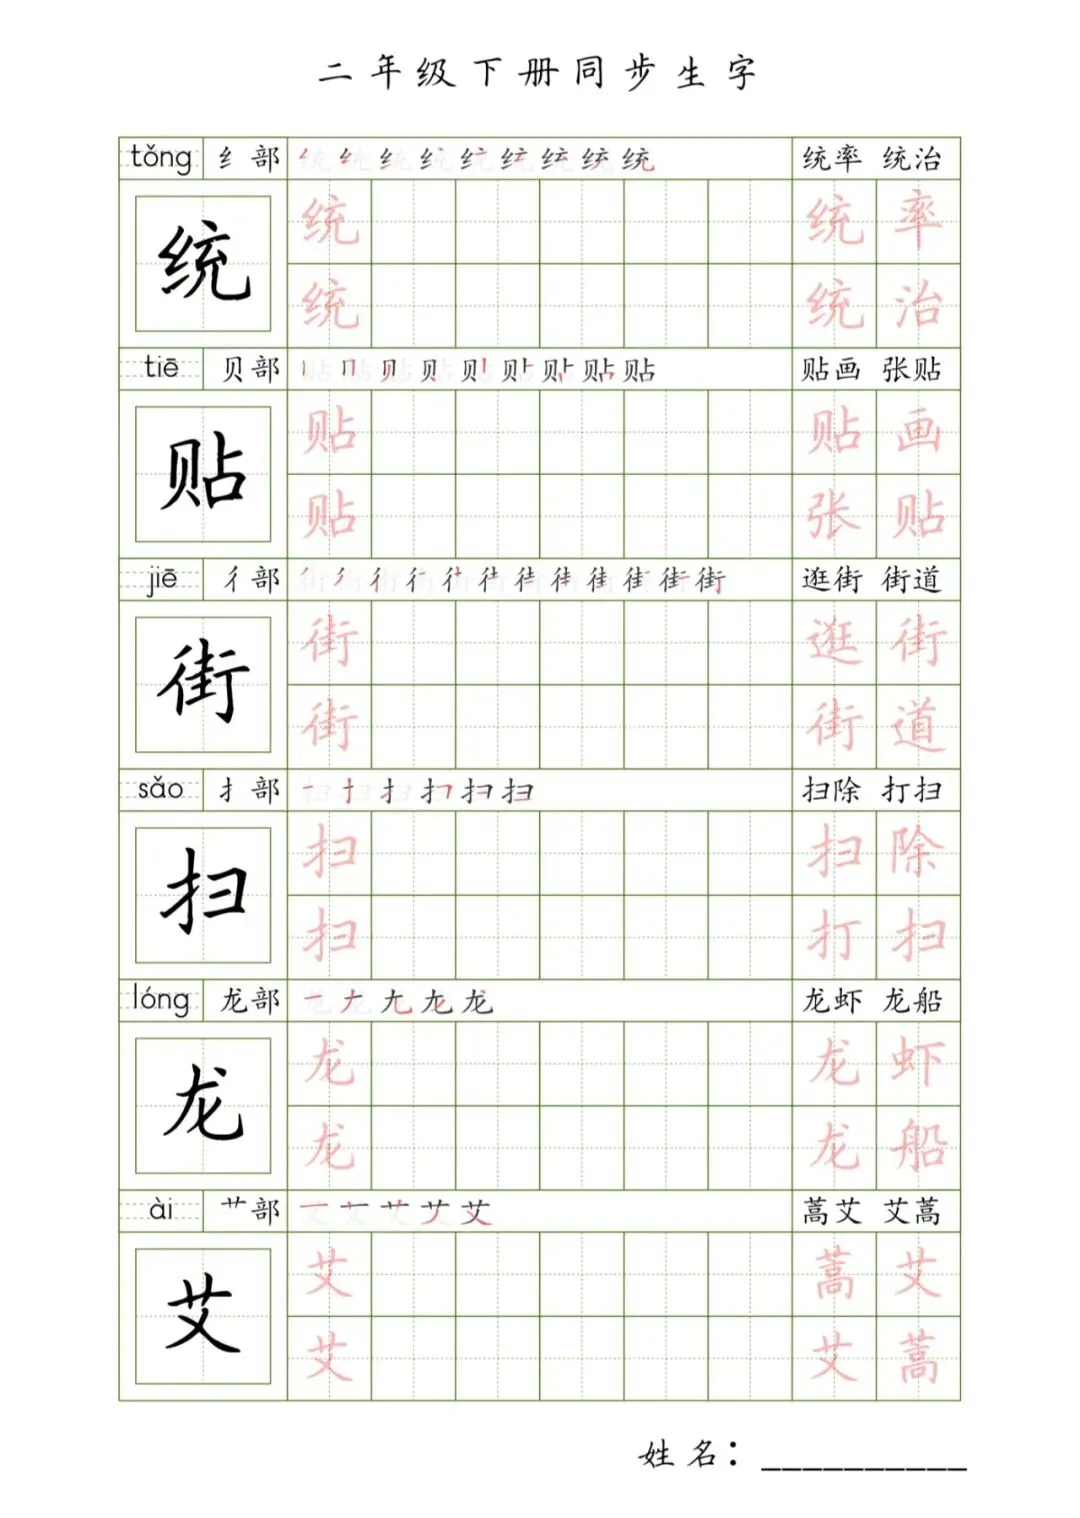 二年级下册同步生字
tǒng 纟部 统 统率 统治
统 统 统率
统 统治
tiē 贝部 贴 贴画 张贴
贴 贴 贴画
贴 张贴
jiē 彳部 街 逛街 街道
街 街 逛街
街 街道
sǎo 扌部 扫 扫除 打扫
扫 扫 扫除
扫 打扫
lóng 龙部 龙 龙虾 龙船
龙 龙 龙虾
龙 龙船
ài 艹部 艾 蒿艾 艾蒿
艾 艾 蒿艾
艾 艾蒿
姓名：__________